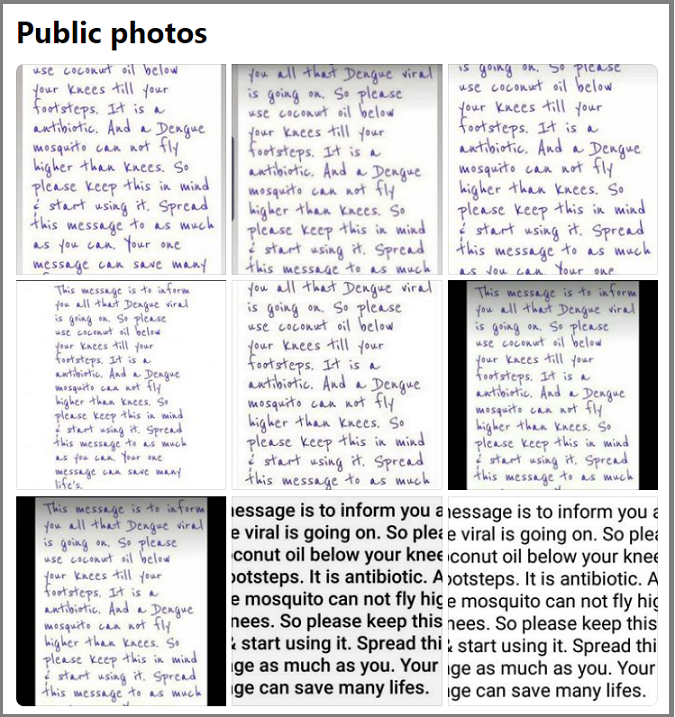 Public photos
use coconut oil below
your knees till your
footsteps. It is a
antibiotic. And a Dengue
mosquito can not fly
higher than knees. So
please keep this in mind
& start using it. Spread
this message to as much
as you can. Your one
message can save many
you all that Dengue viral
is going on. So please
use coconut oil below
your knees till your
footsteps. It is a
antibiotic. And a Dengue
mosquito can not fly
higher than knees. So
please keep this in mind
& start using it. Spread
this message to as much
is going on. So please
use coconut oil below
your knees till your
footsteps. It is a
antibiotic. And a Dengue
mosquito can not fly
higher than knees. So
please keep this in mind
& start using it. Spread
this message to as much
as you can Your one
This message is to inform
you all that Dengue viral
is going on. So please
use coconut oil below
your knees till your
footsteps. It is a
antibiotic. And a Dengue
mosquito can not fly
higher than knees. So
please keep this in mind
& start using it. Spread
this message to as much
as you can. Your one
message can save many
life's.
you all that Dengue viral
is going on. So please
use coconut oil below
your knees till your
footsteps. It is a
antibiotic. And a Dengue
mosquito can not fly
higher than knees. So
please keep this in mind
& start using it. Spread
this message to as much
This message is to inform
you all that Dengue viral
is going on. So please
use coconut oil below
your knees till your
footsteps. It is a
antibiotic. And a Dengue
mosquito can not fly
higher than knees. So
please keep this in mind
& start using it. Spread
this message to as much
This message is to inform
you all that Dengue viral
is going on. So please
use coconut oil below
your knees till your
footsteps. It is a
antibiotic. And a Dengue
mosquito can not fly
higher than knees. So
please keep this in mind
& start using it. Spread
this message to as much
essage is to inform you a
e viral is going on. So plea
conut oil below your knee
ootsteps. It is antibiotic. A
e mosquito can not fly hig
nees. So please keep this
& start using it. Spread thi
ge as much as you. Your
ge can save many lifes.
essage is to inform you a
e viral is going on. So plea
conut oil below your knee
ootsteps. It is antibiotic. A
e mosquito can not fly hig
nees. So please keep this
& start using it. Spread thi
ge as much as you. Your
ge can save many lifes.